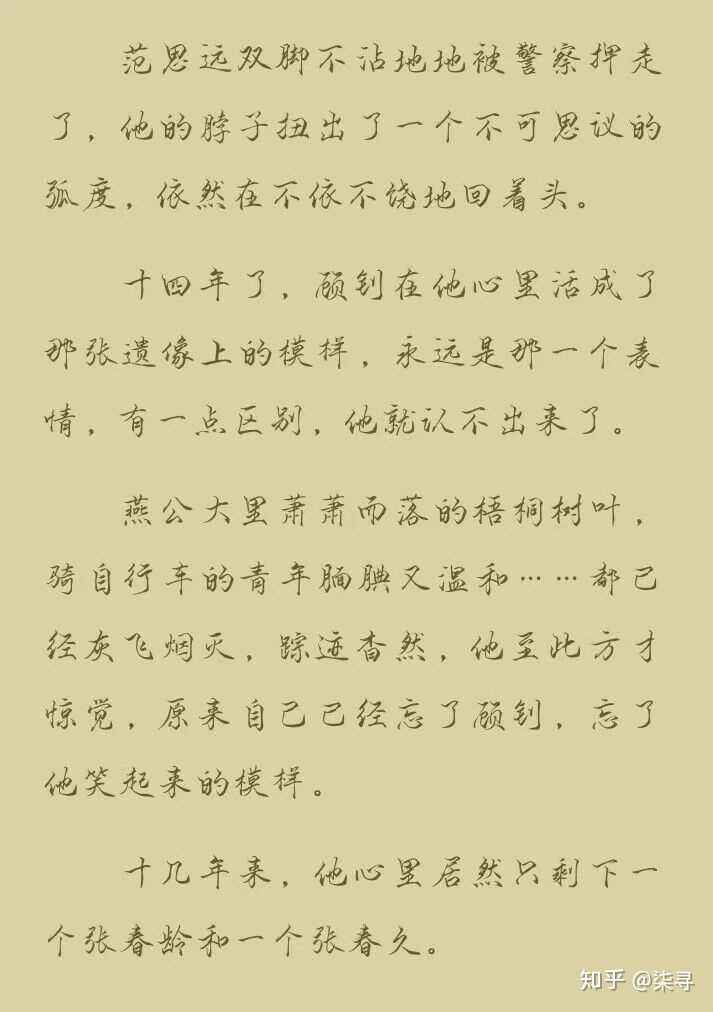 范思远双脚不沾地地被警察押走
了，他的脖子扭出了一个不可思议的
弧度，依然在不依不饶地回着头。
十四年了，顾钊在他心里活成了
那张遗像上的模样，永远是那一个表
情，有一点区别，他就认不出来了。
燕公大里萧萧而落的梧桐树叶，
骑自行车的青年腼腆又温和……都已
经灰飞烟灭，踪迹杳然，他至此方才
惊觉，原来自己已经忘了顾钊，忘了
他笑起来的模样。
十几年来，他心里居然只剩下一
个张春龄和一个张春久。
知乎 @柒寻